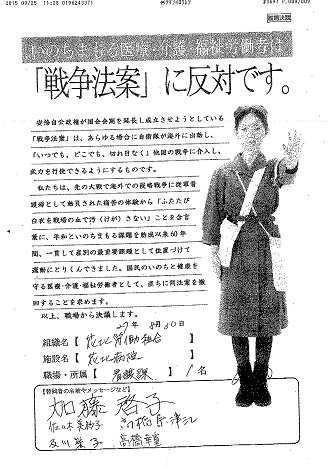 2015/09/25 11:28 0196243371
P.009/009
いのちまもる医療・介護・福祉労働者は
「戦争法案」に反対です。
安倍自公政権が国会会期を延長し成立させようとしている
「戦争法案」は、あらゆる場合に自衛隊が海外に出動し、
「いつでも、どこでも、切れ目なく」他国の戦争に介入し、
武力を行使できるようにするものです。
私たちは、先の大戦で海外での侵略戦争に従軍看
護婦として動員された痛苦の体験から「ふたたび
白衣を戦場の血で汚（けが）さない」ことを合言
葉に、平和といのちまもる課題を結成以来60年
間、一貫して産別の最重要課題として位置づけて
運動にとりくんできました。国民のいのちと健康を
守る医療・介護・福祉労働者として、直ちに同法案を撤
回することを求めます。
以上、職場から決議します。
27年 8月20日
組織名〔 花北労働組合 〕
施設名〔 花北病院 〕
職場・所属〔 看護課 〕 名
【賛同者の名前やメッセージなど】
加藤 啓子
佐々木美
及川栄子 高橋幸